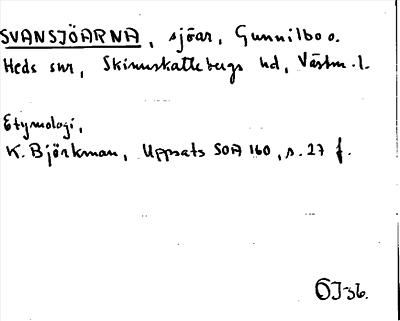 SVANSJÖARNA, sjöar, Gunnilbo o.
Heds snr, Skinnskattebergs hd, Västm. l.
Etymologi,
K. Björkman, Uppsats SOA 160, s. 27 f.
ÖJ-36.